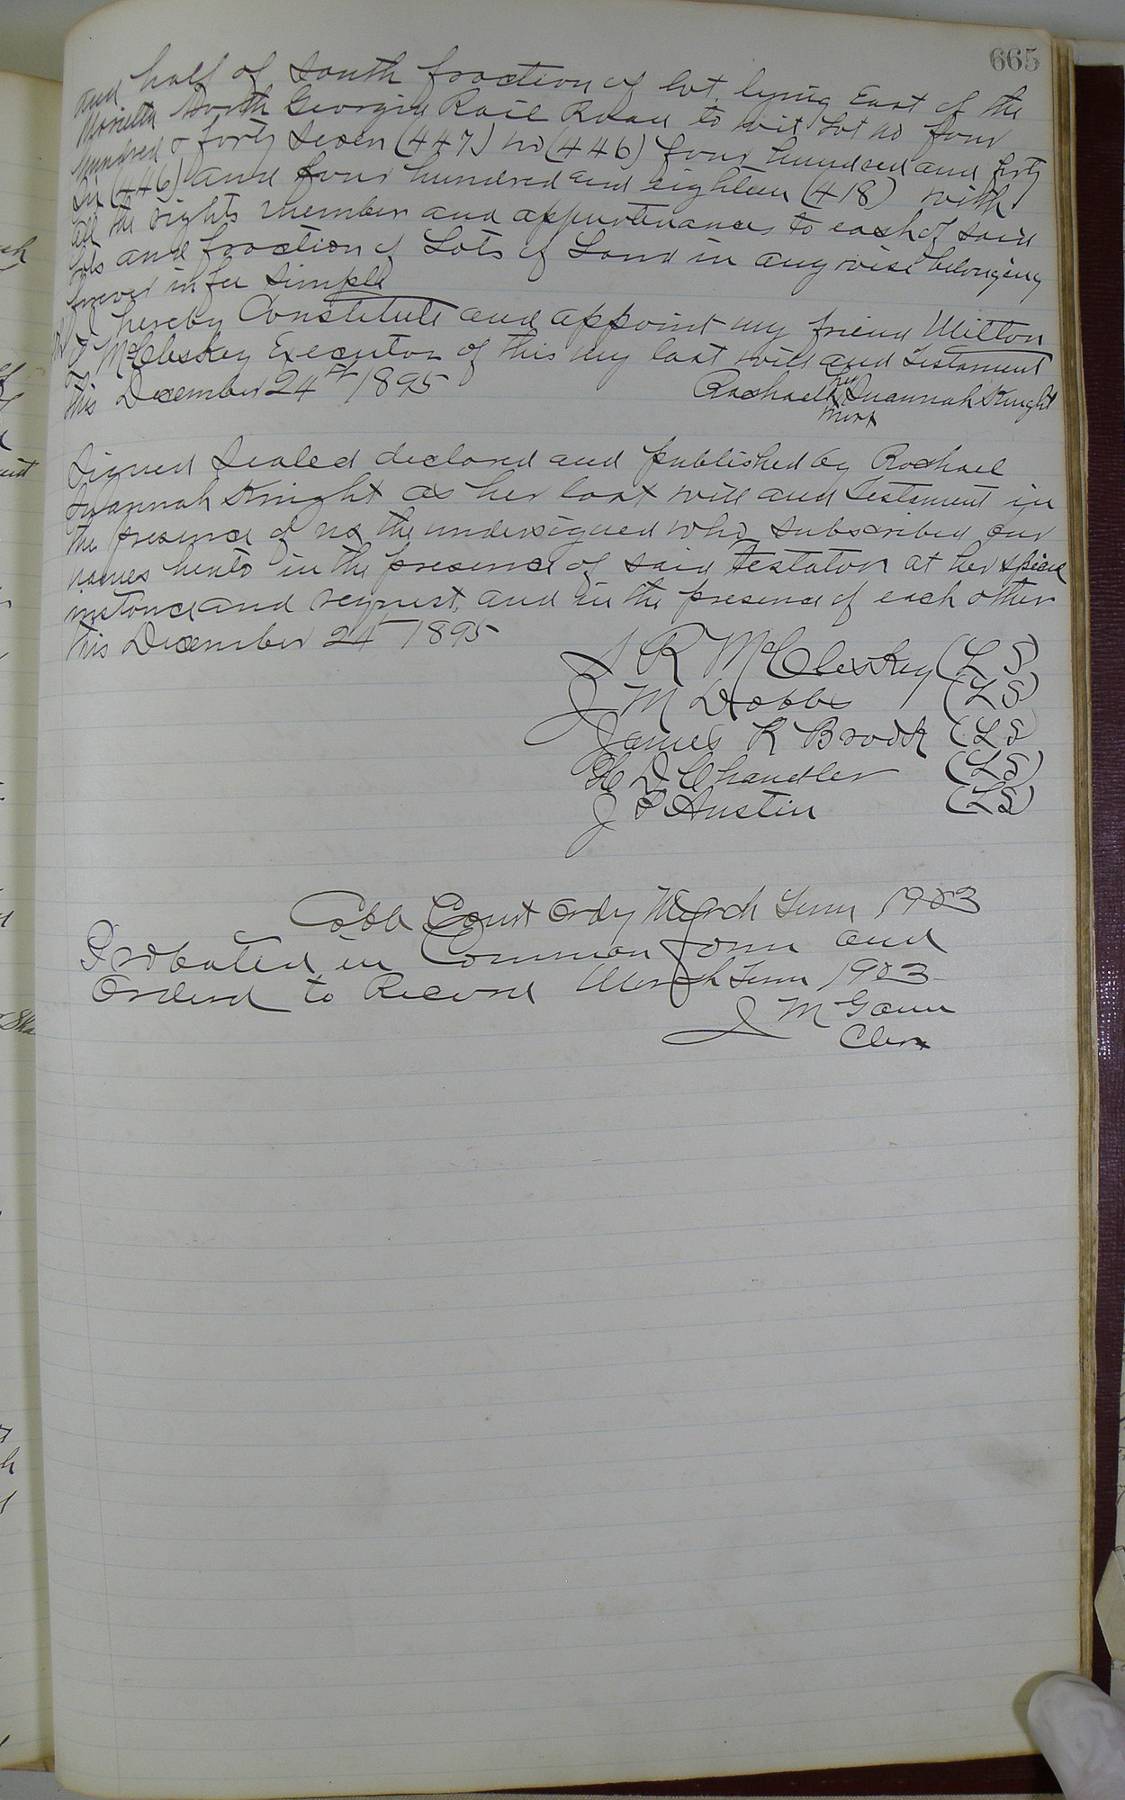 665
and half of South fraction of lot, lying East of the
Marietta North Georgia Rail Road to wit Lot no four
hundred & forty Seven (447) no (446) four hundred and forty
Six (446) and four hundred and eighteen (418) with
all the rights member and appurtenances to each of said
lots and fraction of Lots of Land in any wise belonging
forever in fee simple
I hereby Constitute and appoint my friend Milton
McCleskey Executor of this my last will and Testament
this December 24th 1895 Rachael her Susannah Knight
mark
Signed Sealed declared and published by Rachael
Susannah Knight as her last will and Testament in
the presence of us the undersigned who subscribed our
names hereto in the presence of said Testator at her special
instance and request, and in the presence of each other
this December 24th 1895
R McCleskey (LS)
J M Dobbs (LS)
James R Brook (LS)
H D Chandler (LS)
J P Austin (LS)
Cobb Court Ordy March Term 1903
Probated in Common form and
Ordered to Record March Term 1903
J M Gann
Clerk